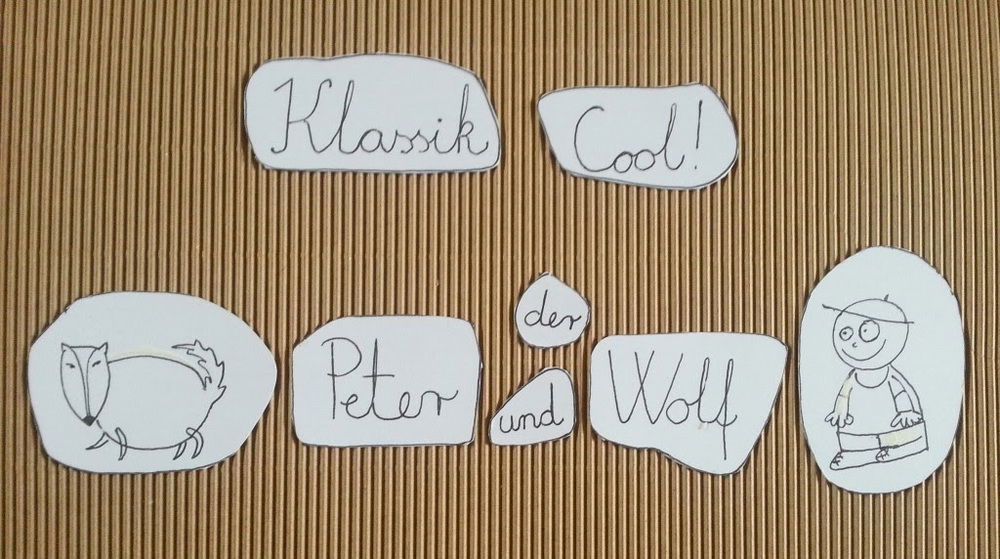 Klassik Cool!
Peter und der Wolf